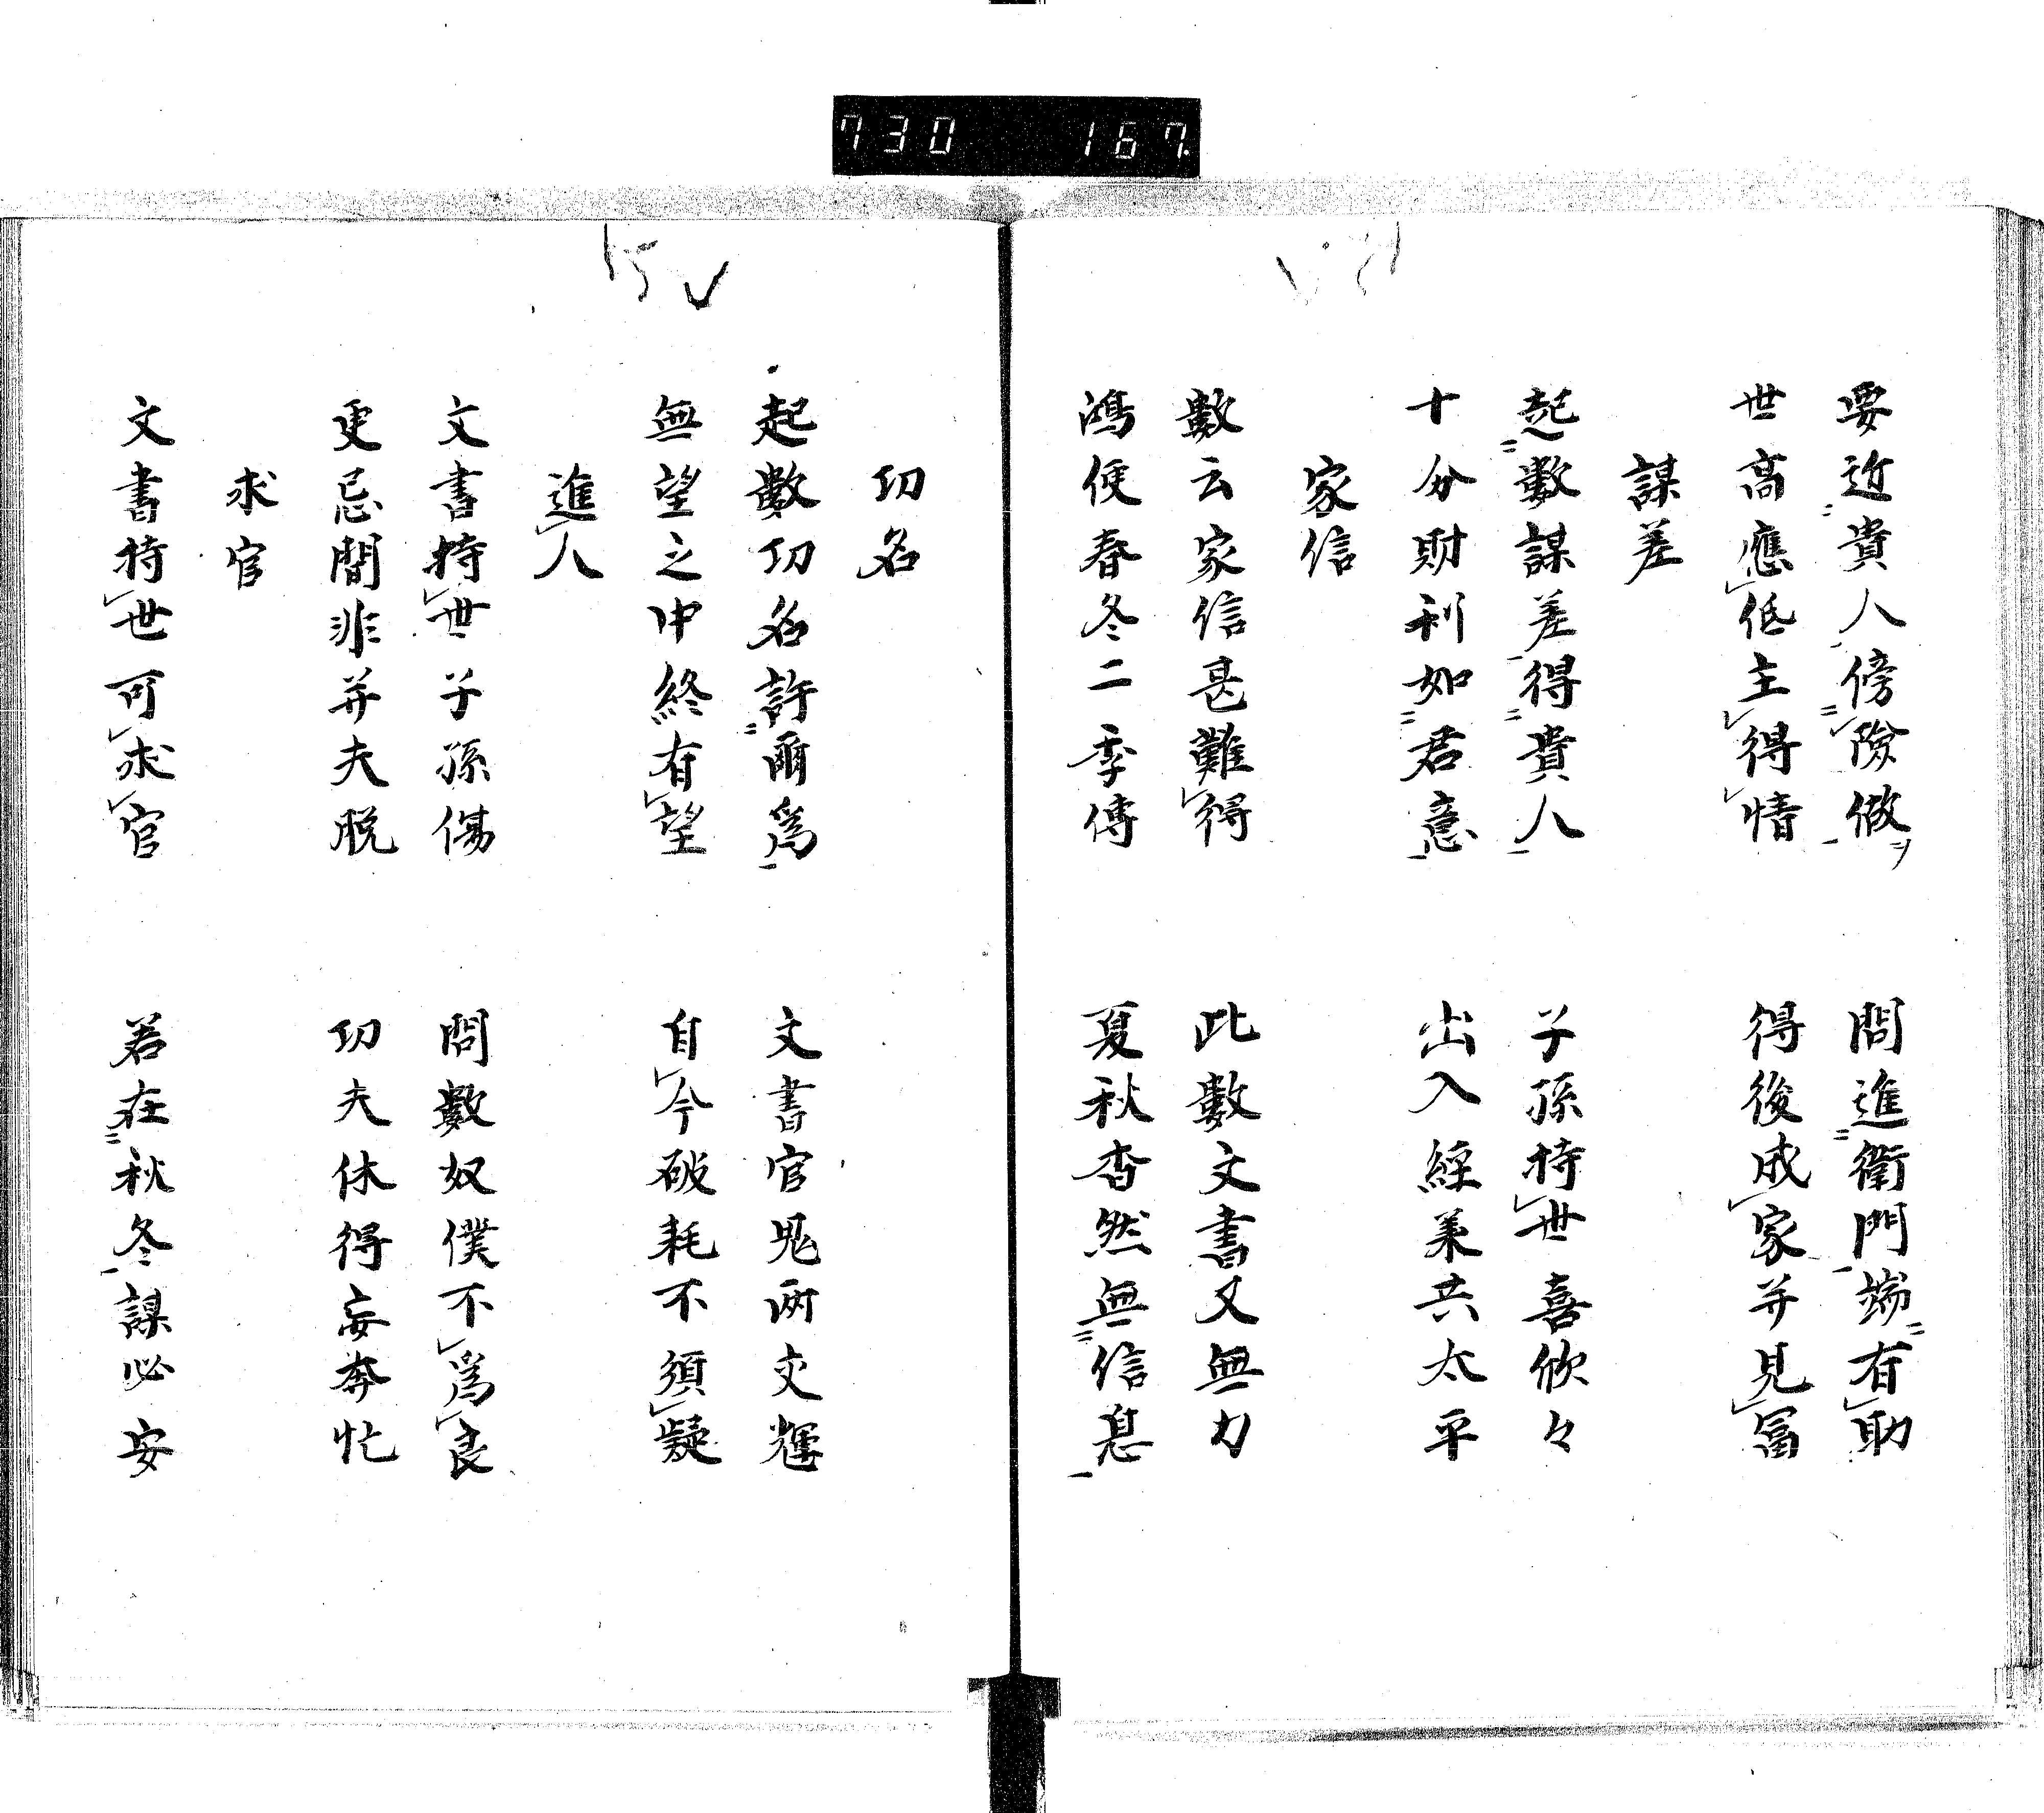 730 167
要近貴人傍險做 問進衛門端有助
世高應低主得情 得後成家并見冨
謀差
起數謀差得貴人 子孫持世喜欣々
十分財利如君意 出入經業共太平
家信
數云家信甚難得 此數文書又無力
鴻便春冬二季傳 夏秋杳然無信息
功名
起數功名許爾爲 文書官鬼兩文輝
無望之中終有望 自今破耗不須疑
進人
文書持世子孫傷 問數奴僕不爲良
更忌間非并夫脱 功夫休得妄奔忙
求官
文書持世可求官 若在秋冬謀必安